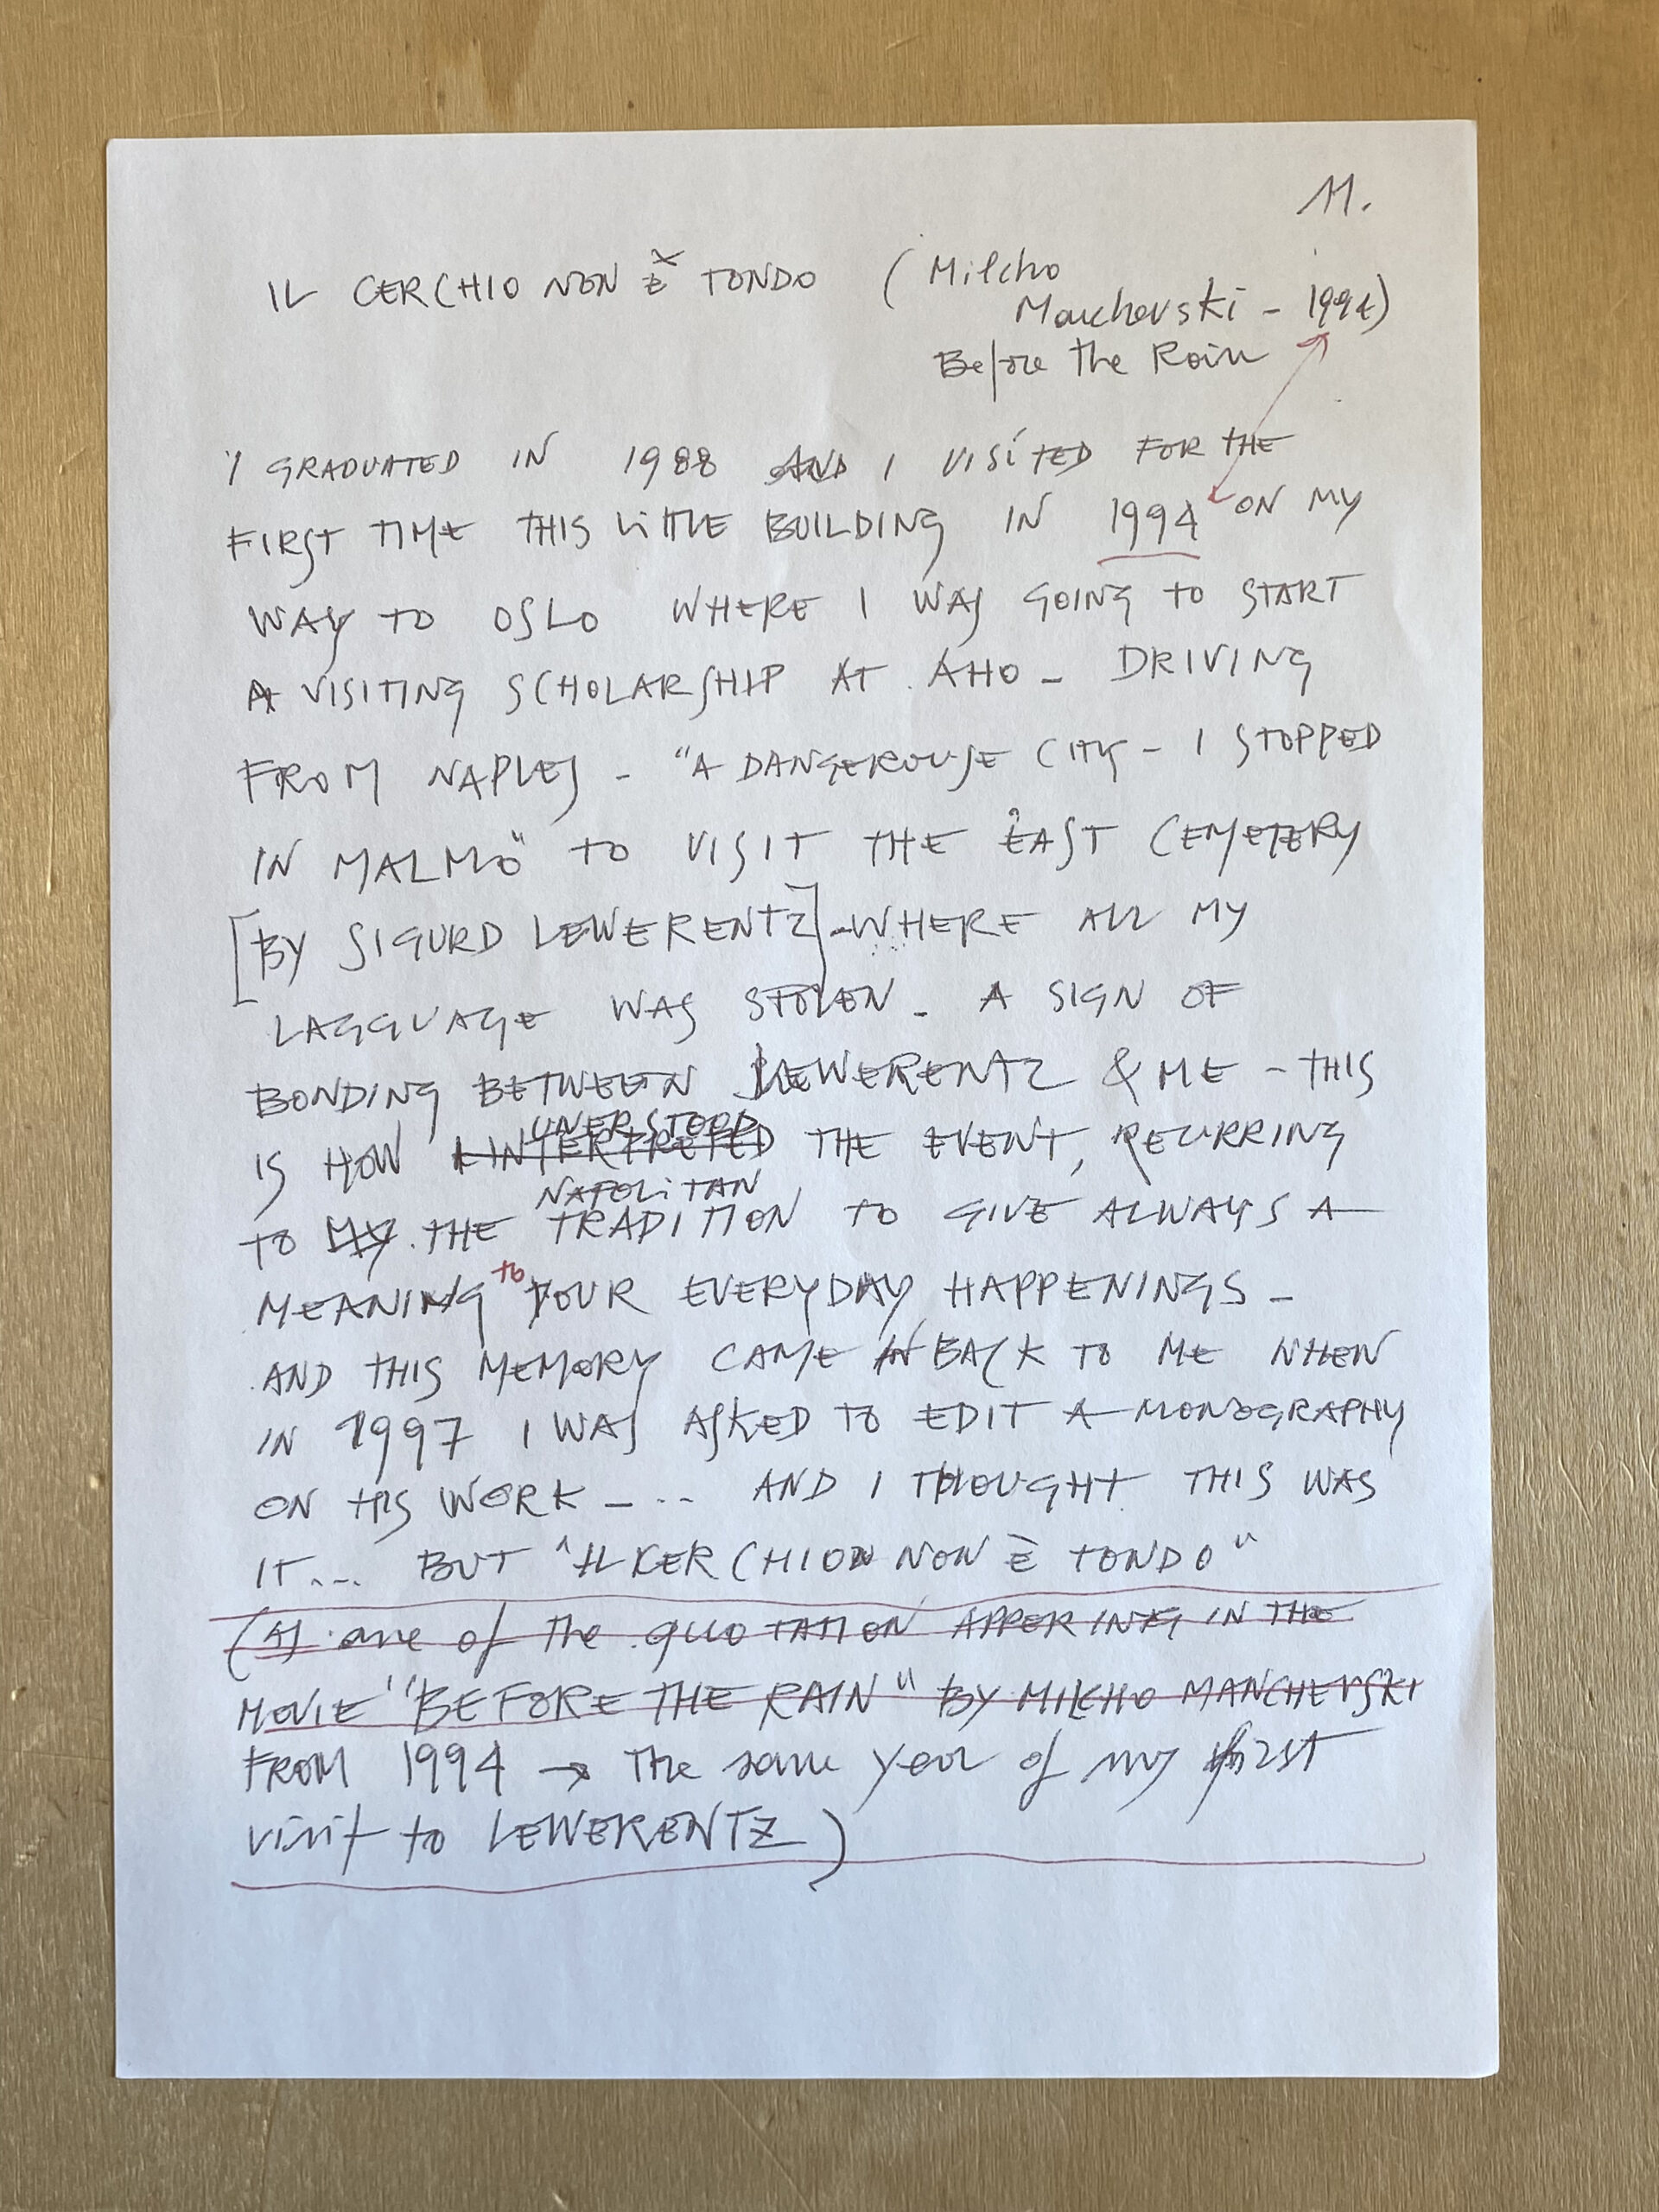 11.
IL CERCHIO NON È TONDO (Milcho
Manchevski - 1994)
Before the Rain
I GRADUATED IN 1988 AND I VISITED FOR THE
FIRST TIME THIS LITTLE BUILDING IN 1994 ON MY
WAY TO OSLO WHERE I WAS GOING TO START
A VISITING SCHOLARSHIP AT AHO - DRIVING
FROM NAPLES - "A DANGEROUSE CITY - I STOPPED
IN MALMÖ TO VISIT THE EAST CEMETERY
[BY SIGURD LEWERENTZ] - WHERE ALL MY
LAGGUAGE WAS STOLEN - A SIGN OF
BONDING BETWEEN LEWERENTZ & ME - THIS
UNERSTOOD
IS HOW I INTERPRETED THE EVENT, RECURRING
NAPOLITAN
TO MY THE TRADITION TO GIVE ALWAYS A
MEANING to YOUR EVERYDAY HAPPENINGS -
AND THIS MEMORY CAME IN BACK TO ME WHEN
IN 1997 I WAS ASKED TO EDIT A MONOGRAPHY
ON HIS WORK - ... AND I THOUGHT THIS WAS
IT... BUT "IL CERCHIO NON È TONDO"
( one of the quoTATION APPERING IN THE
MOVIE "BEFORE THE RAIN" BY MILCHO MANCHEVSKI
FROM 1994 → The same year of my first
visit to LEWERENTZ)